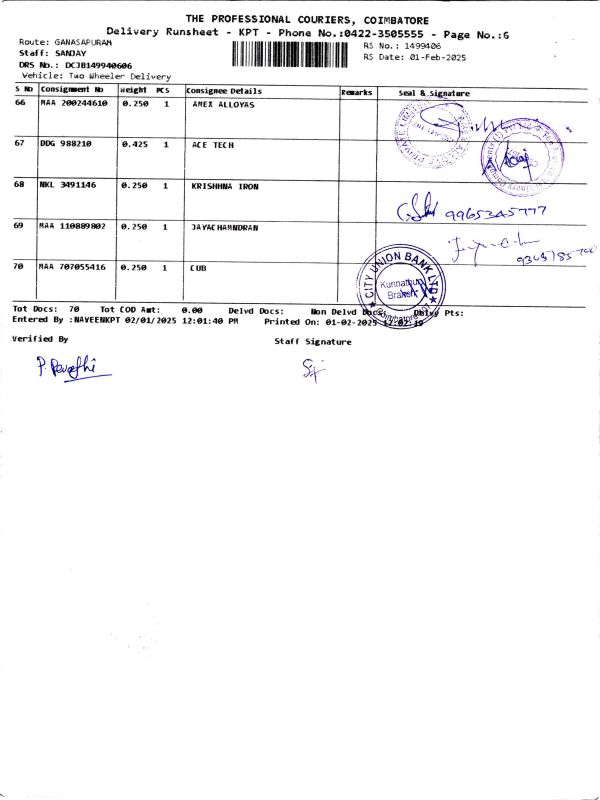 THE PROFESSIONAL COURIERS, COIMBATORE
Delivery Runsheet - KPT - Phone No.:0422-3505555 - Page No.:6
Route: GANASAPURAM
RS No.: 1499406
Staff: SANJAY
RS Date: 01-Feb-2025
DRS No.: DCJB149940606
Vehicle: Two Wheeler Delivery
S No Consignment No Weight PCS Consignee Details Remarks Seal & Signature
66 MAA 200244610 0.250 1 AMEX ALLOYAS
67 DDG 988210 0.425 1 ACE TECH
68 NKL 3491146 0.250 1 KRISHHNA IRON
9965345777
69 MAA 110889802 0.250 1 JAYACHAMNDRAN
70 MAA 707055416 0.250 1 CUB
CITY UNION BANK LTD
Kunnathur
Branch
Coimbatore
Tot Docs: 70 Tot COD Amt: 0.00 Delvd Docs: Non Delvd Docs: Dblvy Pts:
Entered By :NAVEENKPT 02/01/2025 12:01:40 PM Printed On: 01-02-2025 12:02:19
Verified By
Staff Signature
P. Revathi